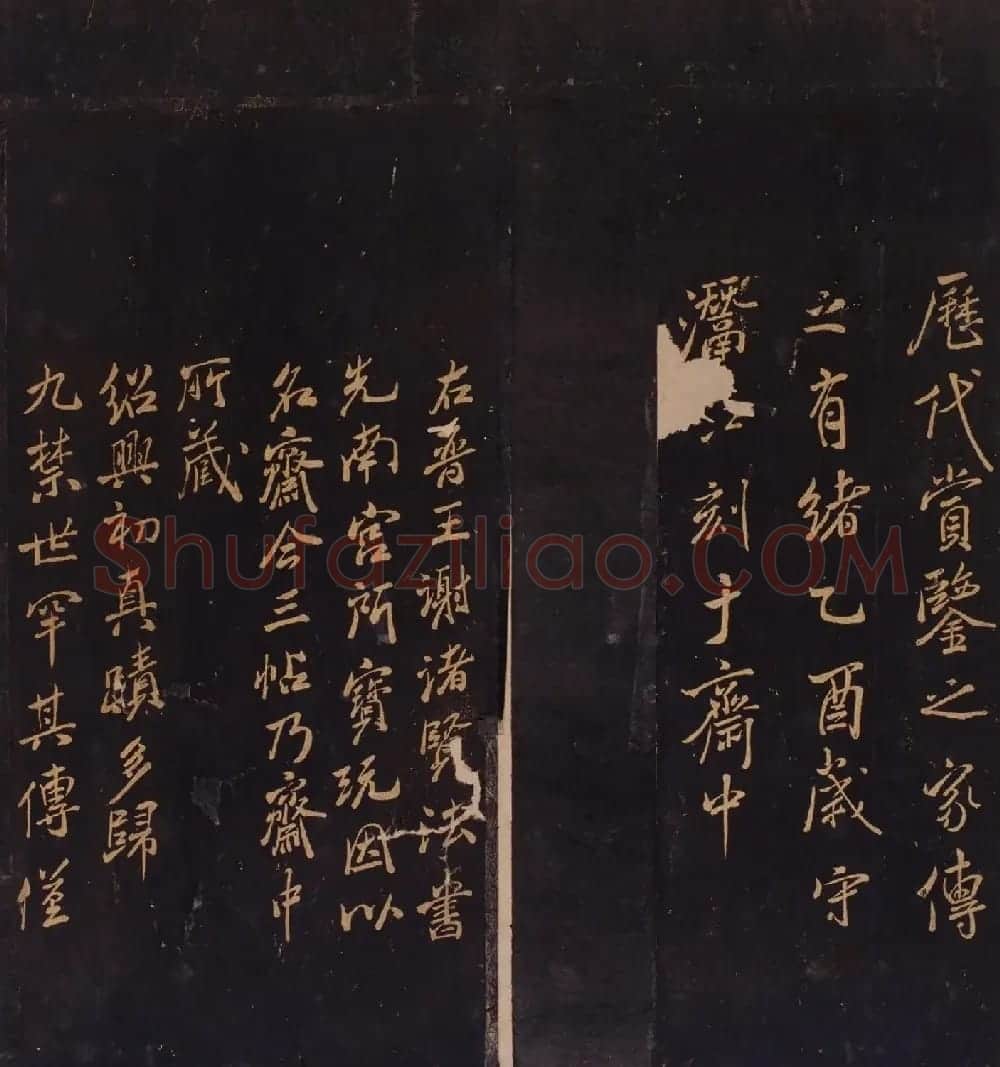 歷代賞鑒之家傳
之有緒乙酉歲守
灊刻于齋中
右晉王謝諸賢法書
先南宮所寶玩因以
名齋今三帖乃齋中
所藏
紹興初真蹟多歸
九禁世罕其傳僅
Shufaziliao.COM